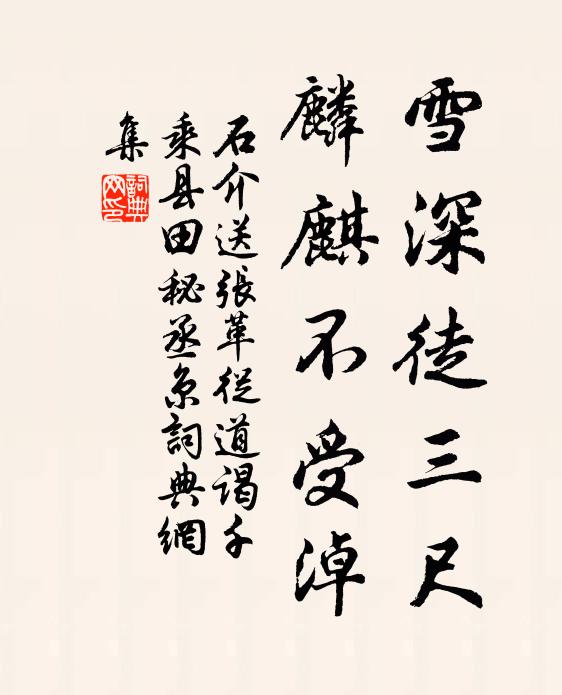 雪深徒三尺
麟麒不受淖
石介送張革從道謁千
乘县田秘丞京詞典網
集
詞典
网印